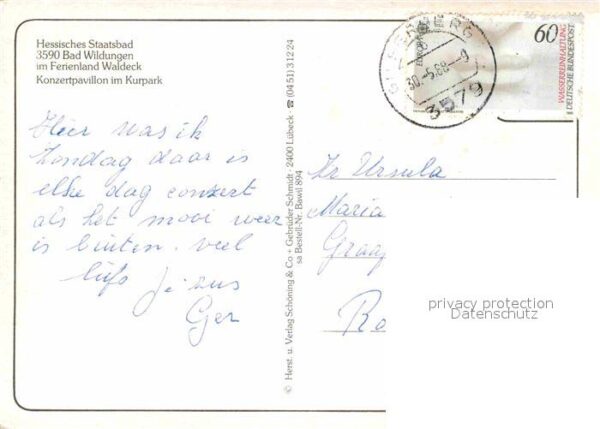 Hessisches Staatsbad
3590 Bad Wildungen
im Ferienland Waldeck
Konzertpavillon im Kurpark
Hier was ik
Zondag daar is
elke dag conzert
als het mooi weer
is buiten. veel
liefs Je zus
Ger
© Herst. u. Verlag Schöning & Co + Gebrüder Schmidt · 2400 Lübeck · ☎ (04 51) 3 12 24
sa Bestell-Nr. Bawil 894
30.-5.88--9
3579
60
WASSERREINHALTUNG
DEUTSCHE BUNDESPOST
Zr Ursula
Maria
Graa
Ro
privacy protection
Datenschutz